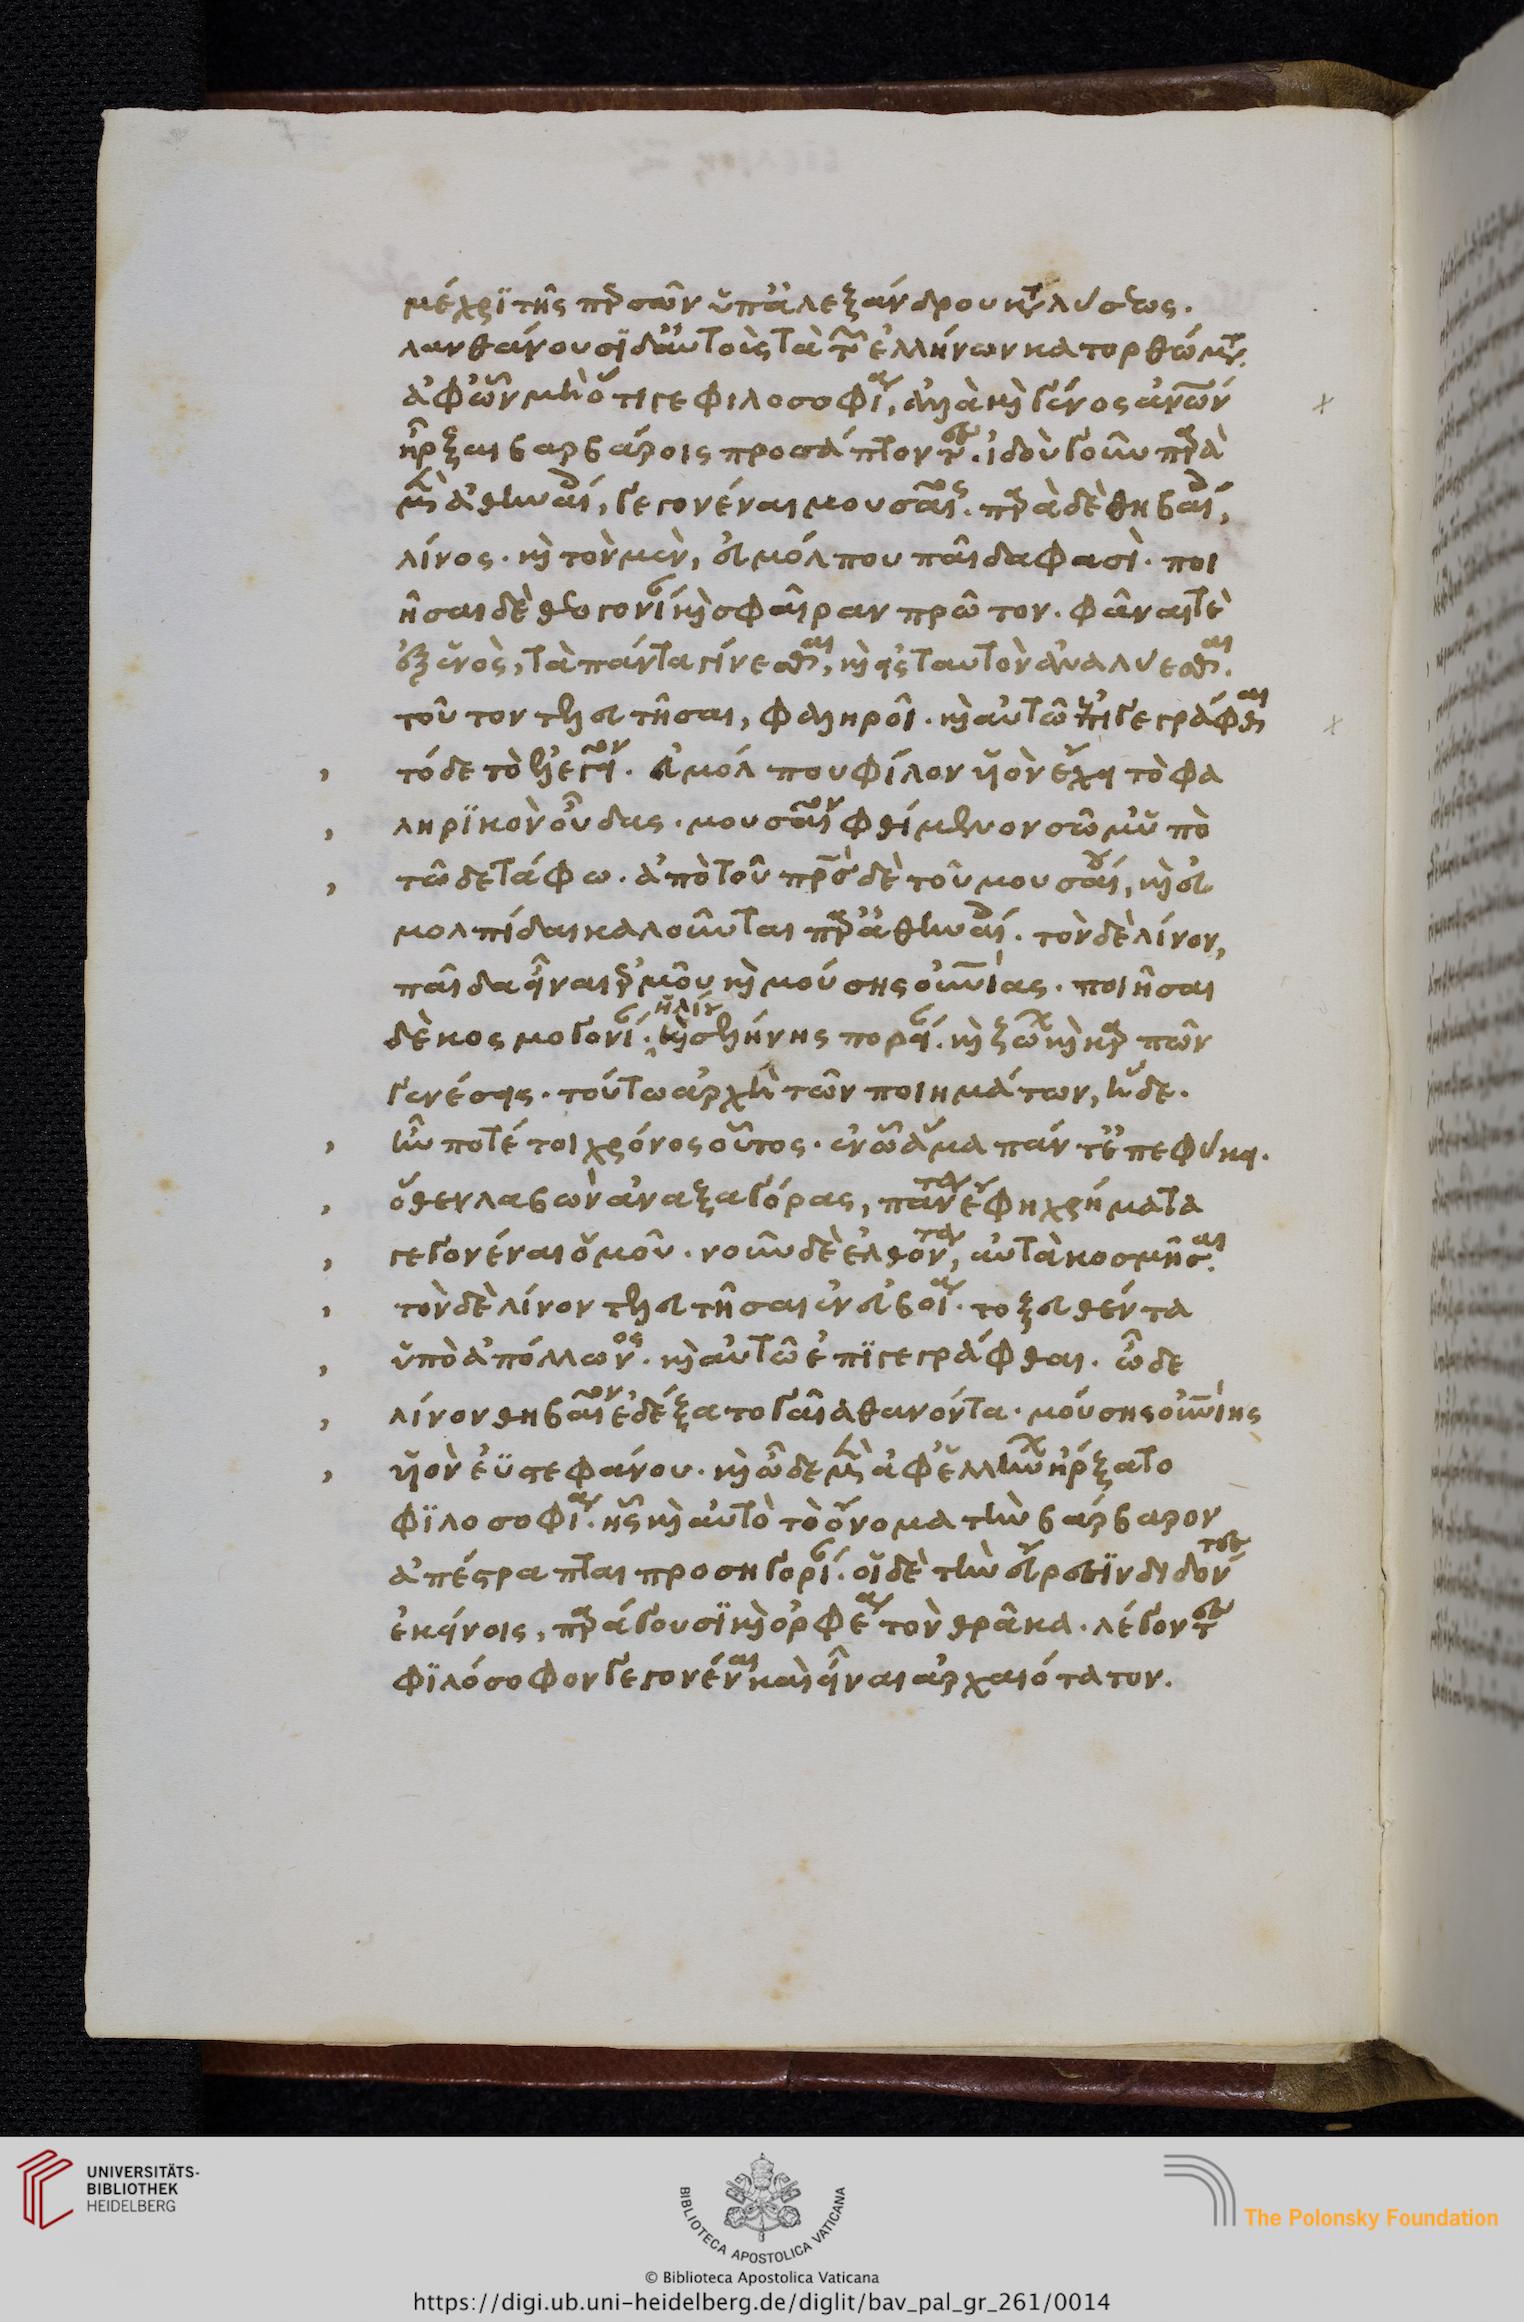 μέχρϊ τῆς περσῶν ὑπ' ἀλεξάνδρου καταλύσεως.
λανθάνουσϊ δ' αὑτοὺς τὰ τῶν ἑλλήνων κατορθώματα.
ἀφ' ὧν μὴ ὅτι γε φιλοσοφία, ἀλλὰ καὶ γένος ἀνθρώπων
ἦρξαι βαρβάροις προσάπτοντες. ἰδοὺ γοῦν παρὰ
μὲν ἀθηναίοις, γεγονέναι μουσαῖος. παρὰ δὲ θηβαίοις,
λίνος. καὶ τὸν μὲν, εὐμόλπου παῖδα φασὶ. ποι
ῆσαι δὲ θεογονίαν καὶ σφαῖραν πρῶτον. φᾶναι τὲ
ἐξ ἑνὸς, τὰ πάντα γίνεσθαι, καὶ εἰς ταυτὸν ἀναλύεσθαι.
τοῦτον τελευτῆσαι, φαληροῖ. καὶ αὐτῶ ἐπιγεγράφθαι
τόδε τὸ ἐλεγεῖον. εὐμόλπου φίλον υἱὸν ἔχει τὸ φα
ληρϊκὸν οὖδας. μουσαῖον φθίμενον σῶμ' ὑπὸ
τῶδε τάφω. ἀπὸ τοῦ πατρὸς δὲ τοῦ μουσαίου, καὶ εὐ
μολπίδαι καλοῦνται παρ' ἀθηναίοις. τὸν δὲ λίνον,
παῖδα εἶναι ἑρμοῦ καὶ μούσης οὐρανίας. ποιῆσαι
δὲ κοσμογονίαν. ἡλίου καὶ σελήνης πορείαν. καὶ ζώων καὶ καρπῶν
γενέσεις. τούτω ἀρχὴ τῶν ποιημάτων, ἥδε.
ἦν ποτέ τοι χρόνος οὗτος. ἐν ὧ ἅμα πάντ' ἐπεφύκει.
ὅθεν λαβὼν ἀναξαγόρας, πάντα ἔφη χρήματα
γεγονέναι ὁμοῦ. νοῦν δὲ ἐλθόντα, αὐτὰ κοσμῆσαι.
τὸν δὲ λίνον τελευτῆσαι ἐν εὐβοία. τοξευθέντα
ὑπὸ ἀπόλλωνος. καὶ αὐτῶ ἐπϊγεγράφθαι. ὧδε
λίνον θηβαῖον ἐδέξατο γαῖα θανόντα. μούσης οὐρανίης
υἱὸν ἐϋστεφάνου. καὶ ὧδε μὲν ἀφ' ἑλλήνων ἤρξατο
φϊλοσοφία. ἧς καὶ αὐτὸ τὸ ὄνομα τὴν βάρβαρον
ἀπέστραπται προσηγορίαν. οἱ δὲ τὴν εὕρεσϊν διδόντες
ἐκείνοις, παράγουσϊ καὶ ὀρφέα τὸν θρᾶκα. λέγοντες
φϊλόσοφον γεγονέναι καὶ εἶναι ἀρχαιότατον.
UNIVERSITÄTS-
BIBLIOTHEK
HEIDELBERG
BIBLIOTECA APOSTOLICA VATICANA
The Polonsky Foundation
© Biblioteca Apostolica Vaticana
https://digi.ub.uni-heidelberg.de/diglit/bav_pal_gr_261/0014